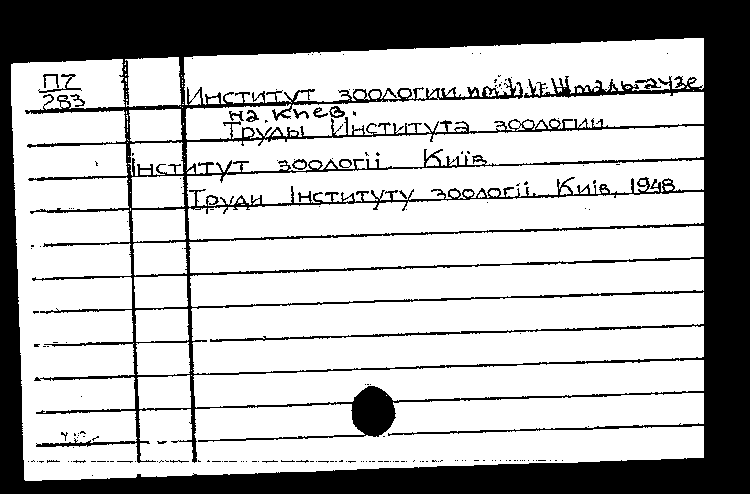 П7
283
Институт зоологии им. И.И. Шмальгаузе
на. Киев.
Труды Института зоологии.
Інститут зоології. Київ.
Труди Інституту зоології. Київ, 1948.